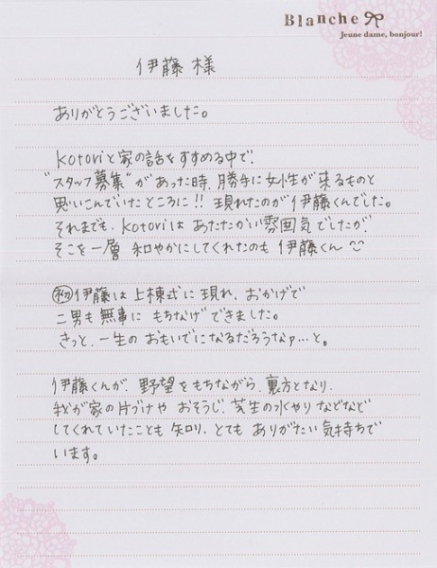 Blanche
Jeune dame, bonjour!
伊藤 様
ありがとうございました。
kotoriと家の話をすすめる中で、
"スタッフ募集"があった時、勝手に女性が来るものと
思いこんでいたところに!! 現れたのが伊藤くんでした。
それまでも、kotoriは あたたかい雰囲気でしたが、
そこを一層 和やかにしてくれたのも 伊藤くん
初伊藤は上棟式に現れ、おかげで
二男も無事に もちなげできました。
きっと、一生の おもいでになるだろうなァ…と。
伊藤くんが、野望をもちながら、裏方となり、
我が家の片づけや おそうじ、芝生の水やり などなど
してくれていたことも 知り、とても ありがたい気持ちで
います。